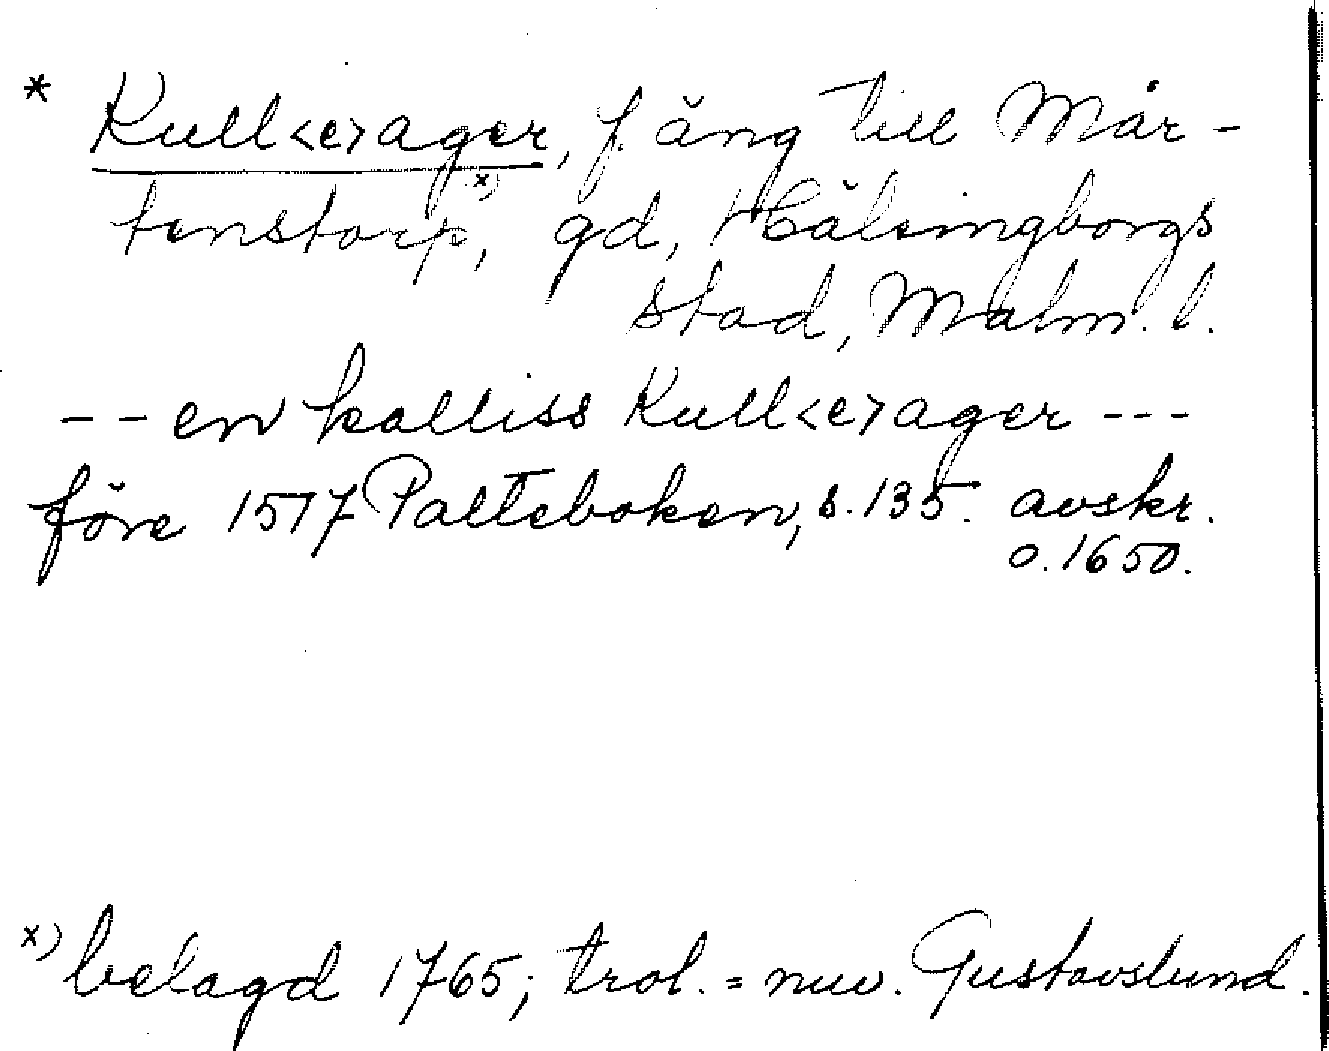 * Kull<e>ager, f. äng till Mår-
tenstorp, x) gd, Hälsingborgs
stad, Malm. l.
-- en kalliss Kull<e>ager ---
före 1517 Palteboken, s. 135. avskr.
o. 1650.
x) belagd 1765; trol. = nuv. Gustavslund.